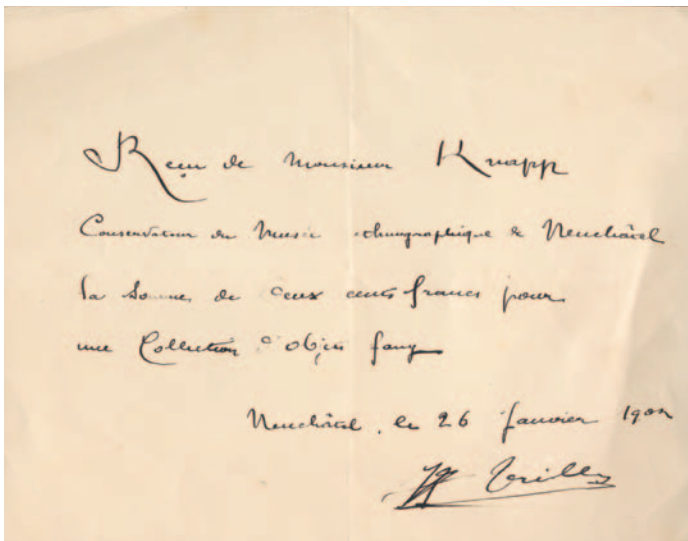 Reçu de Monsieur Knapp
Conservateur du Musée ethnographique de Neuchâtel
la somme de deux cents francs pour
une Collection d'objets fang
Neuchâtel, le 26 Janvier 190
Trilles